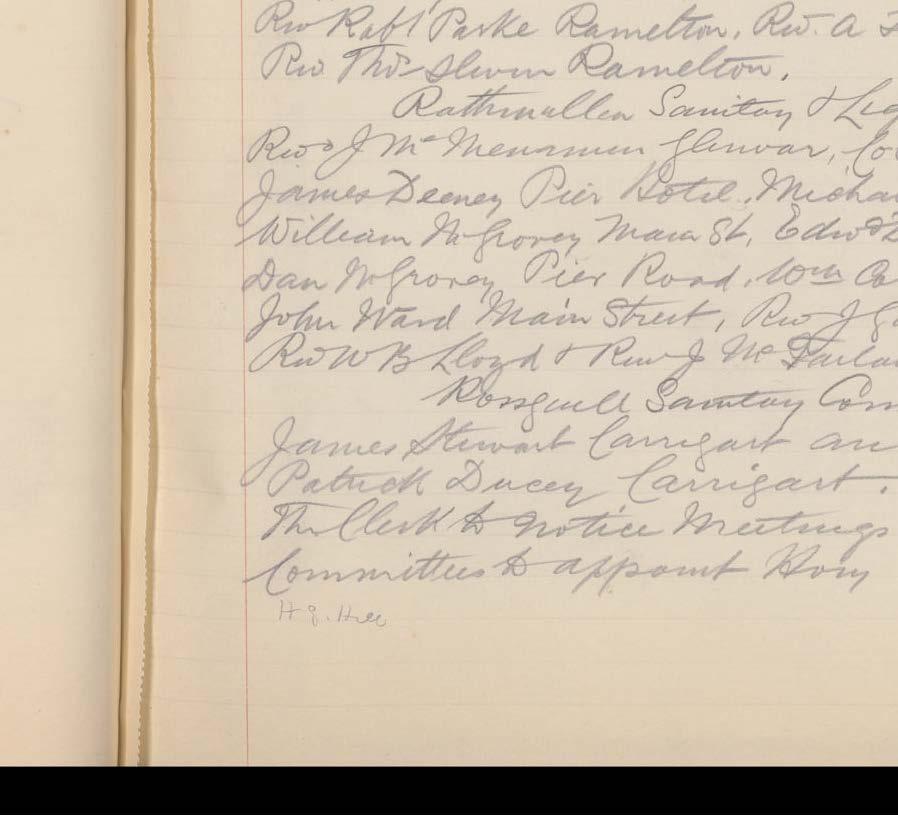 Rev Robt Parke Ramelton, Rev. A
Rev Thos Slevin Ramelton.
Rathmullen Sanitay & Lig
Revd J Mc Menamin Glenvar, Co
James Deeney Pier Hotel, Michae
William McGrorey Main St, Edwd
Dan McGrorey Pier Road, Wm Co
John Ward Main Street, Rev J G
Rev W B Lloyd & Rev J Mc Farla
Rossguill Sanitay Com
James Stewart Carrigart an
Patrick Ducey Carrigart.
The Clerk to notice Meetings
Committees to appoint Hony
H g. Hill